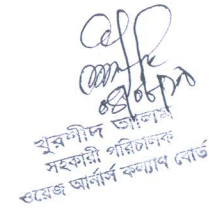 খুরশীদ আলম
সহকারী পরিচালক
ওয়েজ আর্নার্স কল্যাণ বোর্ড